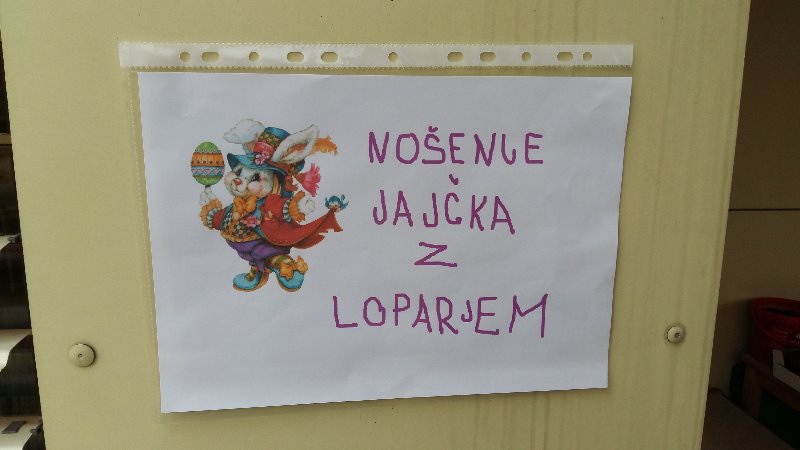 NOŠENJE
JAJČKA
Z
LOPARJEM